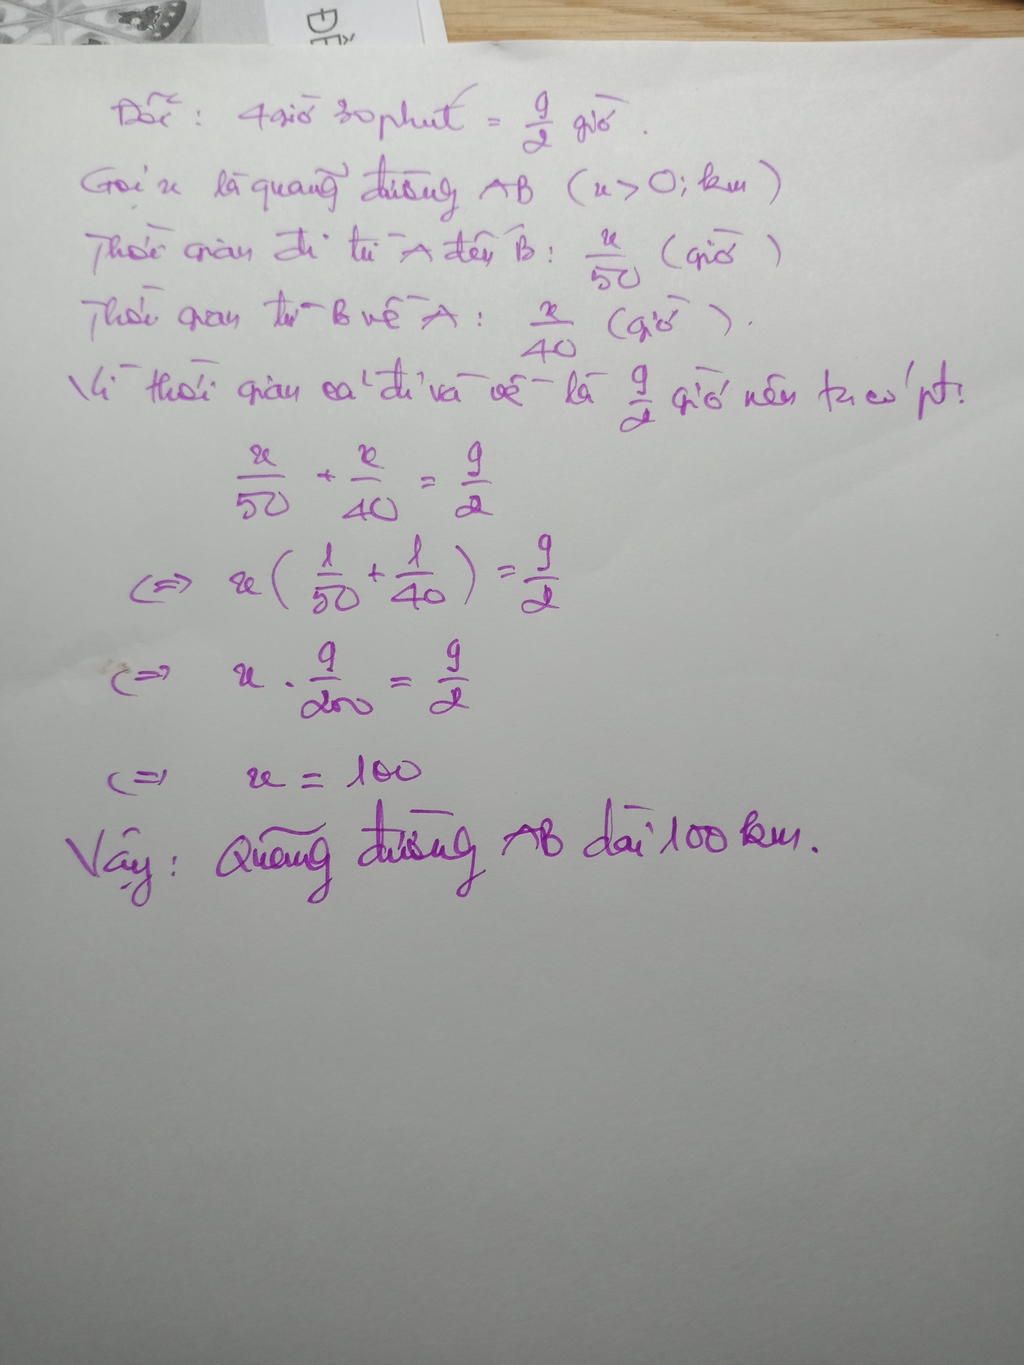 ĐỀ
Đổi: 4 giờ 30 phút = 9/2 giờ.
Gọi x là quãng đường AB (x > 0; km)
Thời gian đi từ A đến B: x/50 (giờ)
Thời gian từ B về A: x/40 (giờ).
Vì thời gian cả đi và về là 9/2 giờ nên ta có pt:
x/50 + x/40 = 9/2
<=> x(1/50 + 1/40) = 9/2
<=> x . 9/200 = 9/2
<=> x = 100
Vậy: Quãng đường AB dài 100 km.